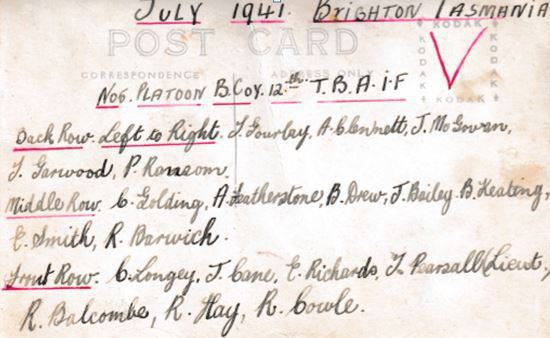 JULY 1941. BRIGHTON TASMANIA
POST CARD
CORRESPONDENCE ADDRESS ONLY
KODAK KODAK KODAK
No 6. PLATOON B. Coy. 12th. T.B. A.I.F
Back Row. Left to Right. J. Gourlay, A. Clennett, J. McGowan,
J. Garwood, P. Ransom.
Middle Row. C. Golding, A. Featherstone, B. Drew, J. Bailey. B. Keating,
E. Smith, R. Barwich.
Front Row. C. Longey, J. Cane, E. Richards, J. Pearsall (Lieut,
R. Balcombe, R. Hay, R. Cowle.